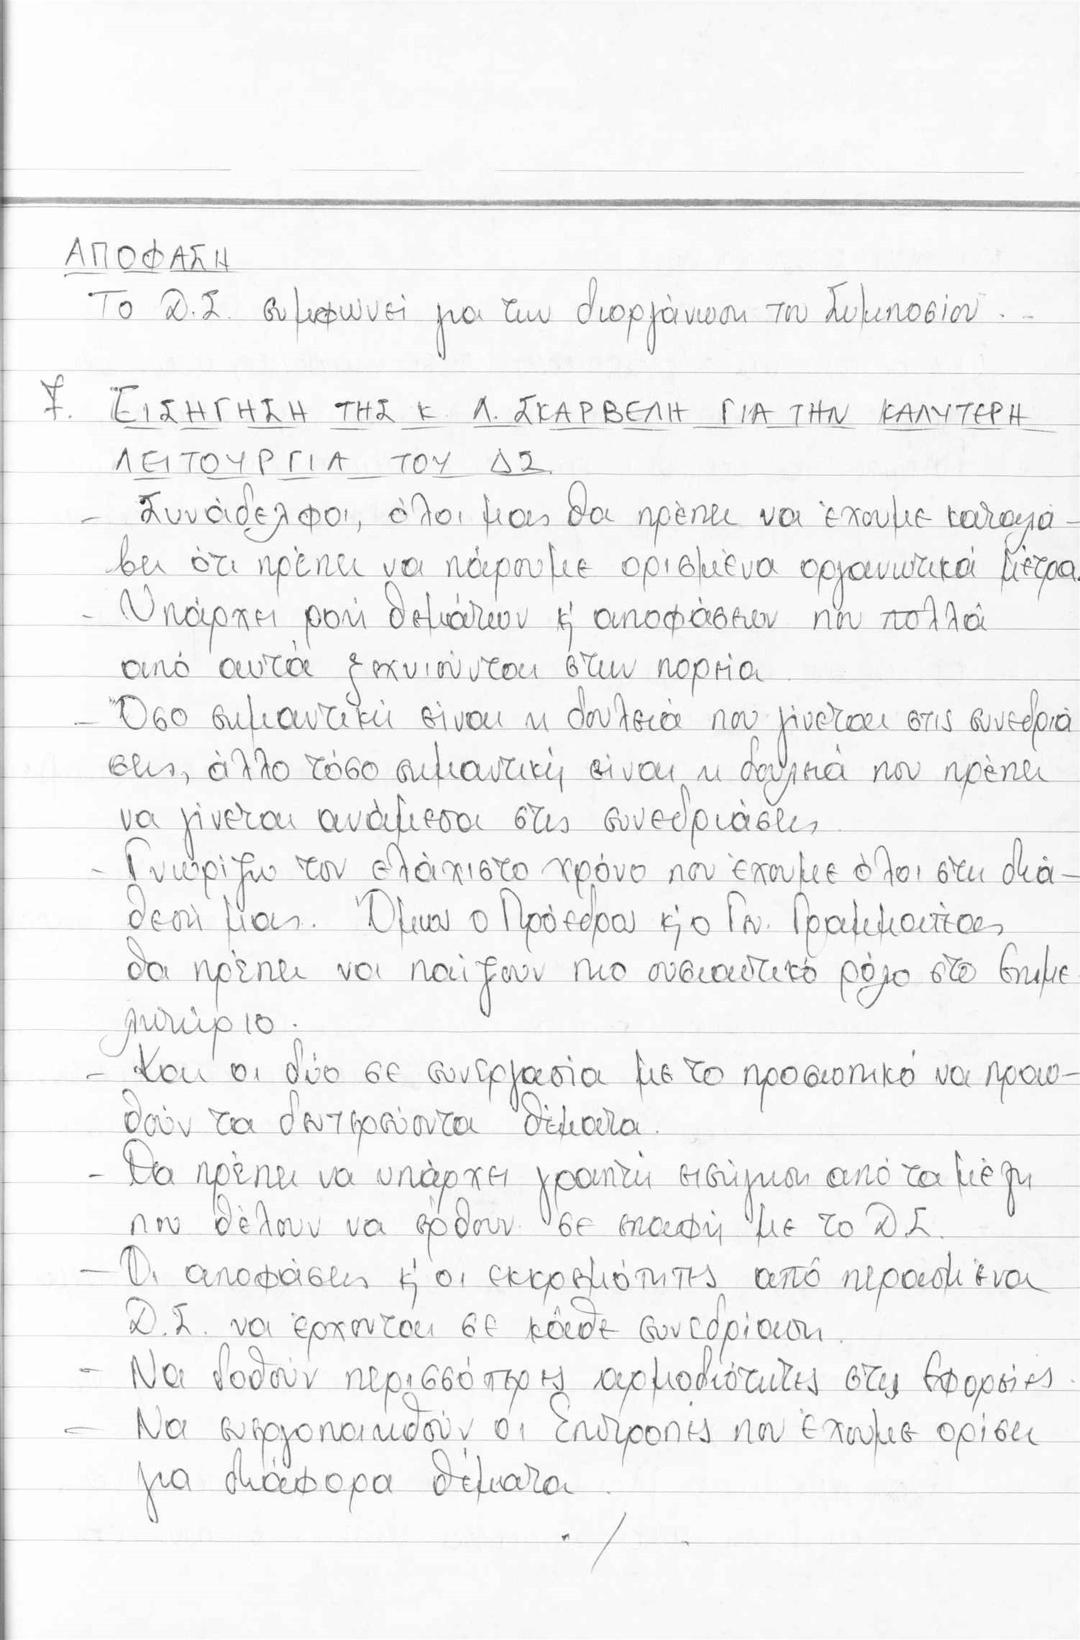 ΑΠΟΦΑΣΗ
Το Δ.Σ. συμφωνεί για την διοργάνωση του Συμποσίου.
7. ΕΙΣΗΓΗΣΗ ΤΗΣ Κ Λ. ΣΚΑΡΒΕΛΗ ΓΙΑ ΤΗΝ ΚΑΛΥΤΕΡΗ
ΛΕΙΤΟΥΡΓΙΑ ΤΟΥ ΔΣ
- Συνάδελφοι, όλοι μας θα πρέπει να έχουμε καταλά-
βει ότι πρέπει να πάρουμε ορισμένα οργανωτικά μέτρα.
- Υπάρχει ροή θεμάτων κ' αποφάσεων που πολλά
από αυτά ξεχνιούνται στην πορεία
- Όσο σημαντική είναι η δουλειά που γίνεται στις συνεδριά
σεις, άλλο τόσο σημαντική είναι η δουλειά που πρέπει
να γίνεται ανάμεσα στις συνεδριάσεις.
- Γνωρίζω τον ελάχιστο χρόνο που έχουμε όλοι στη διά-
θεσή μας. Όμως ο Πρόεδρος κ' ο Γεν. Γραμματέας
θα πρέπει να παίξουν πιο ουσιαστικό ρόλο στο Επιμε
λητήριο.
- Και οι δύο σε συνεργασία με το προσωπικό να προω-
θούν τα δευτερεύοντα θέματα.
- Θα πρέπει να υπάρχει γραπτή εισήγηση από τα μέλη
που θέλουν να έρθουν σε επαφή με το Δ.Σ.
- Οι αποφάσεις κ' οι εκκρεμότητες από περασμένα
Δ.Σ. να έρχονται σε κάθε συνεδρίαση.
- Να δοθούν περισσότερες αρμοδιότητες στις Εφορείες.
- Να ενεργοποιηθούν οι Επιτροπές που έχουμε ορίσει
για διάφορα θέματα.
./.